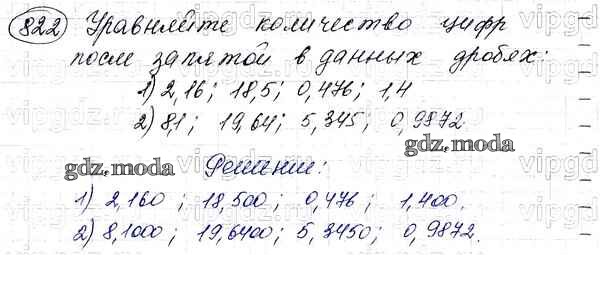 822 Уравняйте количество цифр
после запятой в данных дробях:
1) 2,16; 18,5; 0,476; 1,4
2) 8,1; 19,64; 5,345; 0,9872.
gdz.moda
gdz.moda
Решение:
1) 2,160; 18,500; 0,476; 1,400.
2) 8,1000; 19,6400; 5,3450; 0,9872.